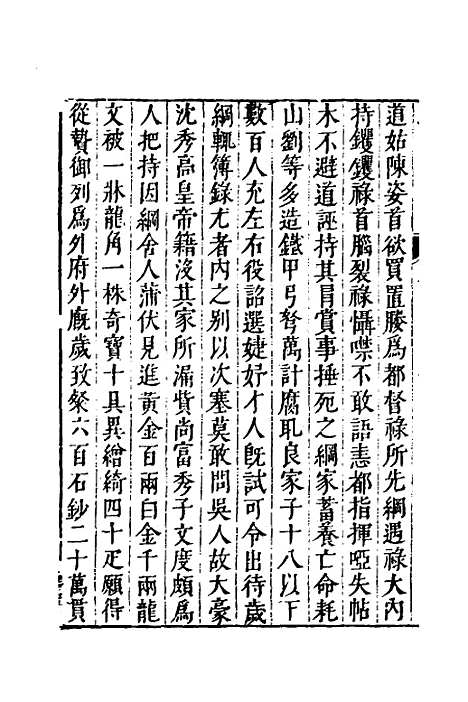 道姑陳姿首欲買置媵爲都督祿所先綱遇祿大內
持钁钁祿首腦裂祿懾噤不敢語恚都指揮啞失帖
木不避道誣持其冐賞事捶死之綱家蓄養亡命耗
山劉等多造鐵甲弓弩萬計腐耴良家子十八以下
數百人充左右役詔選婕妤才人旣試可令出待歲
綱輒簿錄尤者內之別以次塞莫敢問吳人故大豪
沈秀高皇帝籍沒其家所漏貲尚富秀子文度頗爲
人把持因綱舍人蒲伏見進黃金百兩白金千兩龍
文被一牀龍角一株奇寶十具異繪綺四十疋願得
從贄御列爲外府外廐歲孜粲六百石鈔二十萬貫